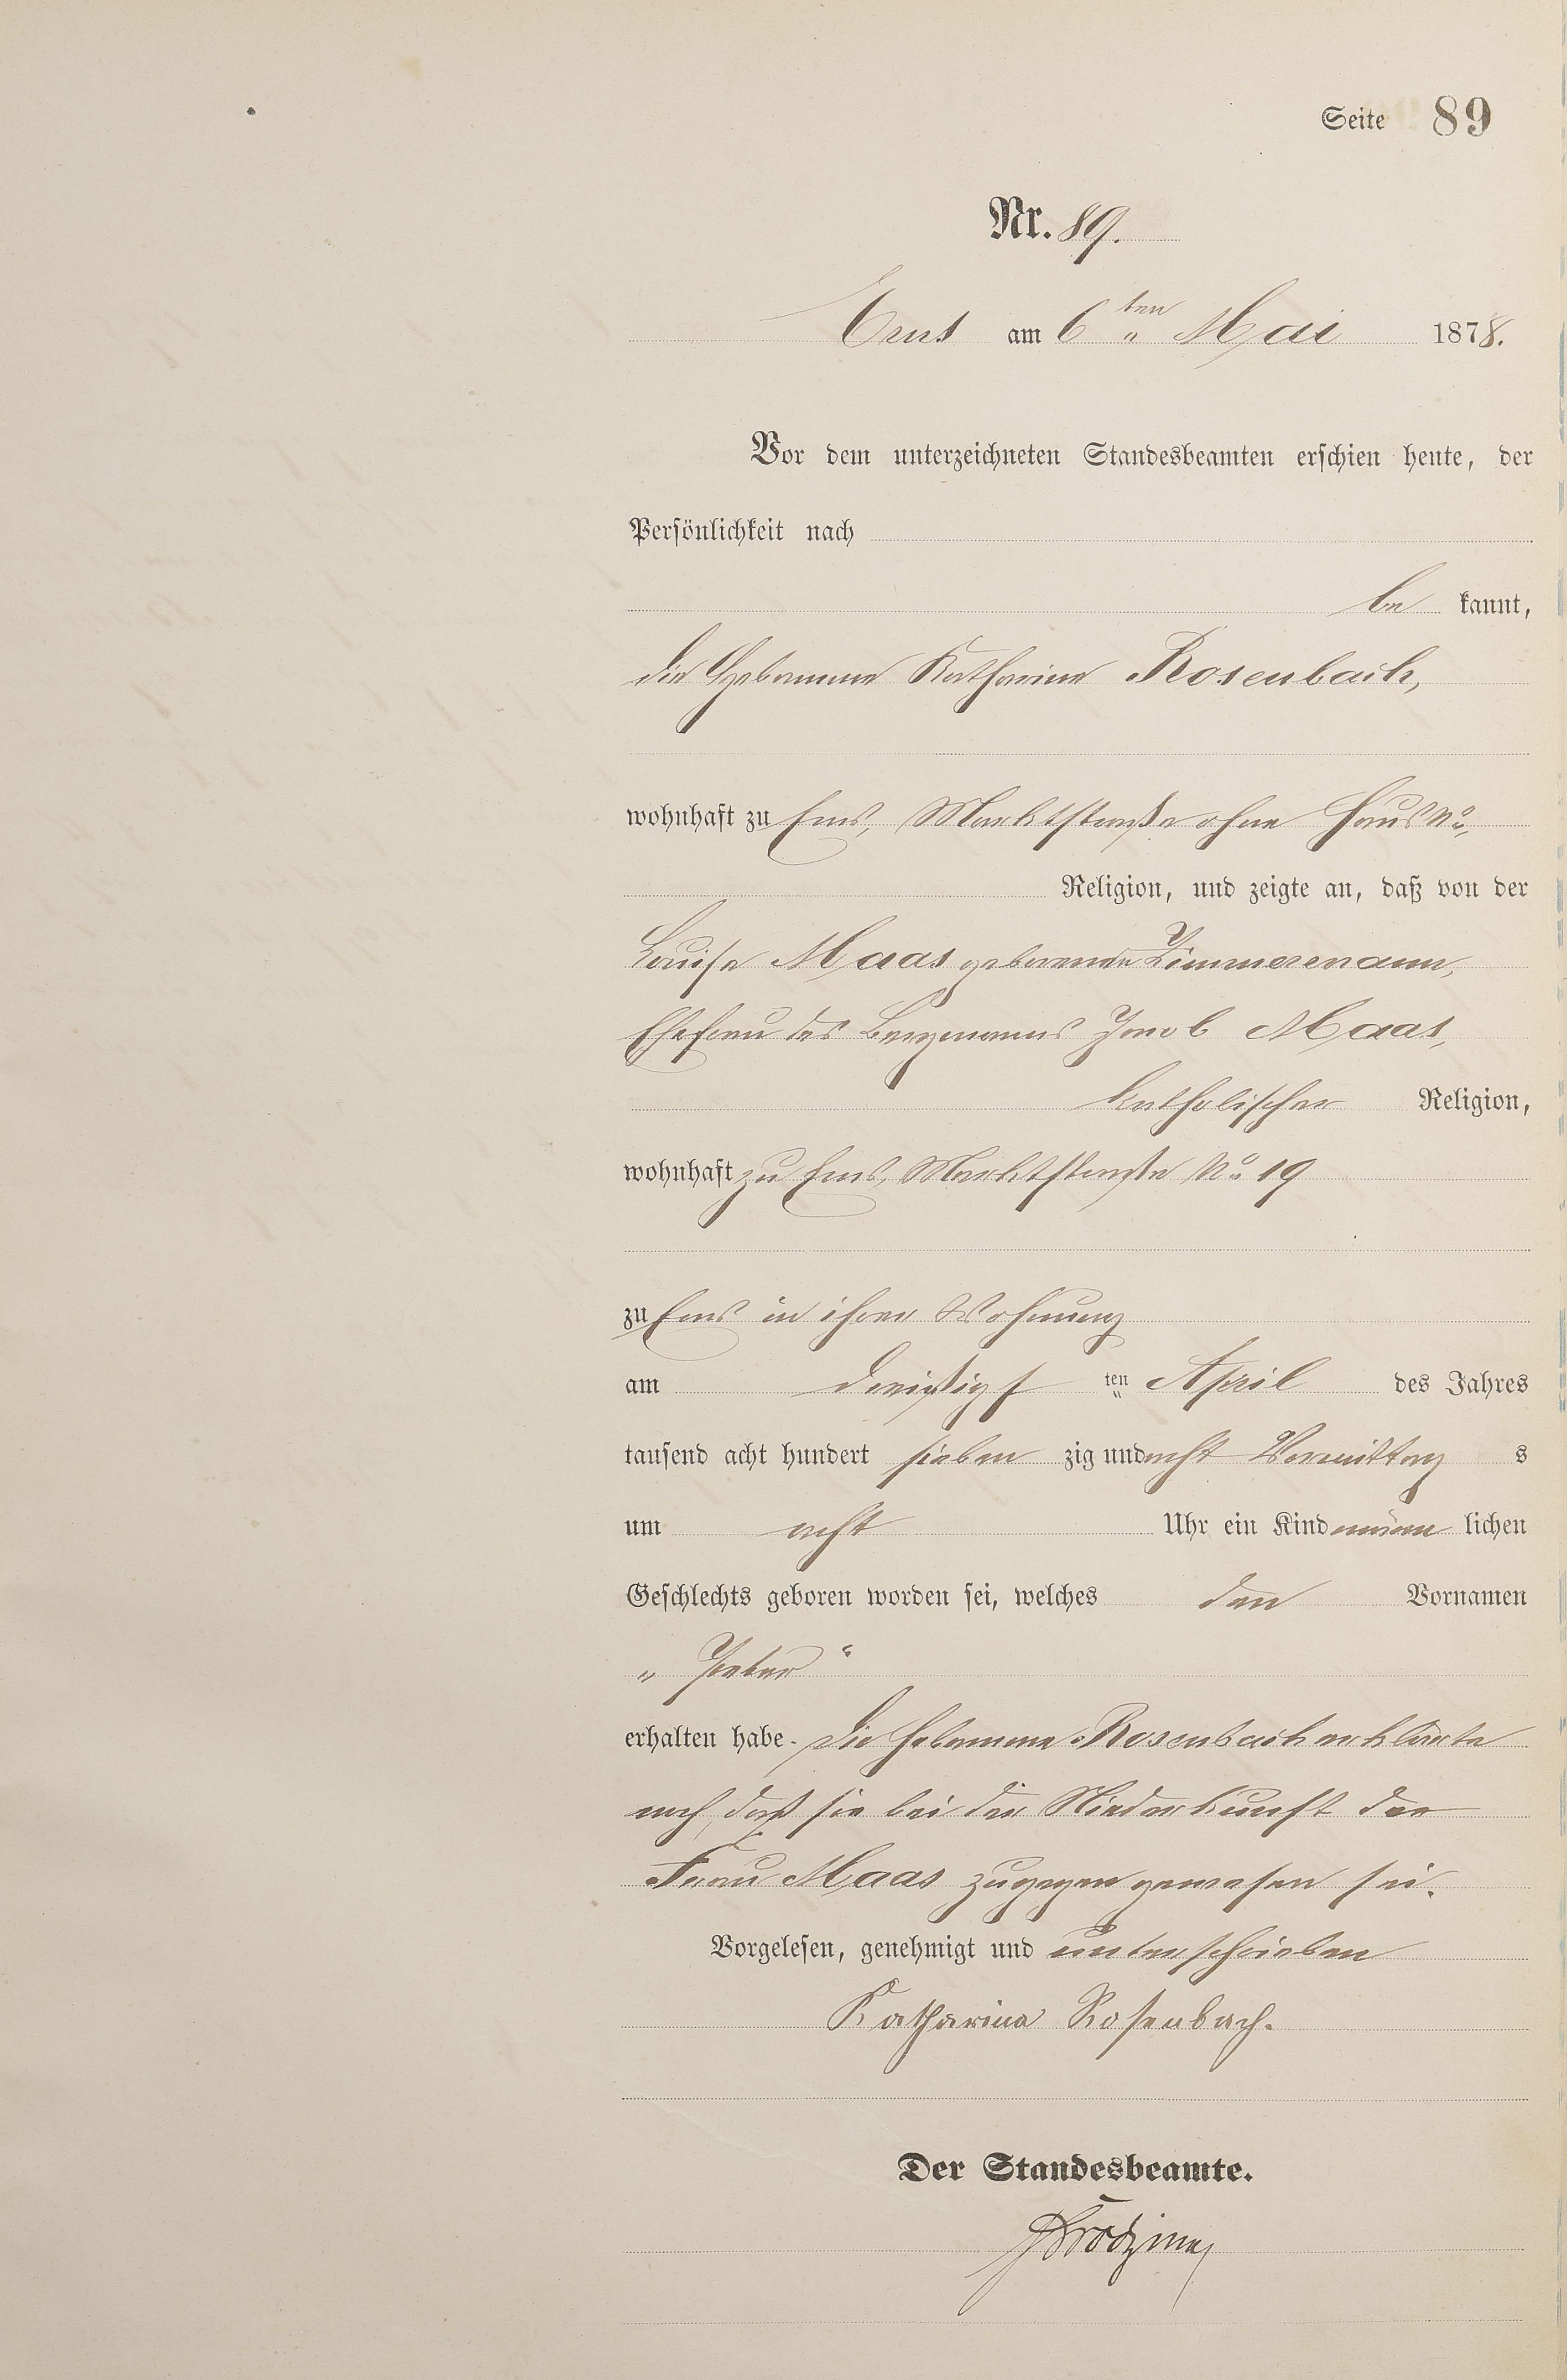 Seite 89
Nr. 89.
Ems am 6ten Mai 1878.
Vor dem unterzeichneten Standesbeamten erschien heute, der
Persönlichkeit nach
be kannt,
die Hebamme Katharina Rosenbach,
wohnhaft zu Ems, Marktstraße ohne Haus No,
Religion, und zeigte an, daß von der
Louise Maas geborene Zimmermann,
Ehefrau des Bergmanns Jacob Maas,
katholischer Religion,
wohnhaft zu Ems, Marktstraße No 19
zu Ems in ihrer Wohnung
am dreißigs ten April des Jahres
tausend acht hundert sieben zig und acht Vormittag s
um acht Uhr ein Kind männ lichen
Geschlechts geboren worden sei, welches den Vornamen
„ Peter “
erhalten habe. Die Hebamme Rosenbach erklärte
noch, daß sie bei der Niederkunft der
Frau Maas zugegen gewesen sei.
Vorgelesen, genehmigt und unterschrieben
Katharina Rosenbach.
Der Standesbeamte.